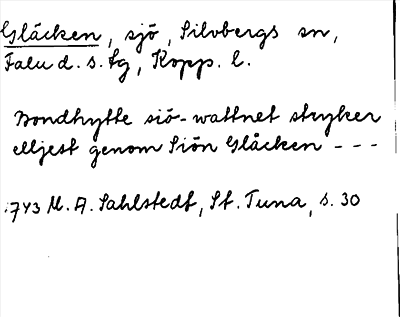 Gläcken, sjö, Silvbergs sn,
Falu d. s. lg, Kopp. l.
Bondhytte siö-wattnet stryker
elljest genom Siön Glåcken - - -
1743 M. A. Sahlstedt, St. Tuna, s. 30